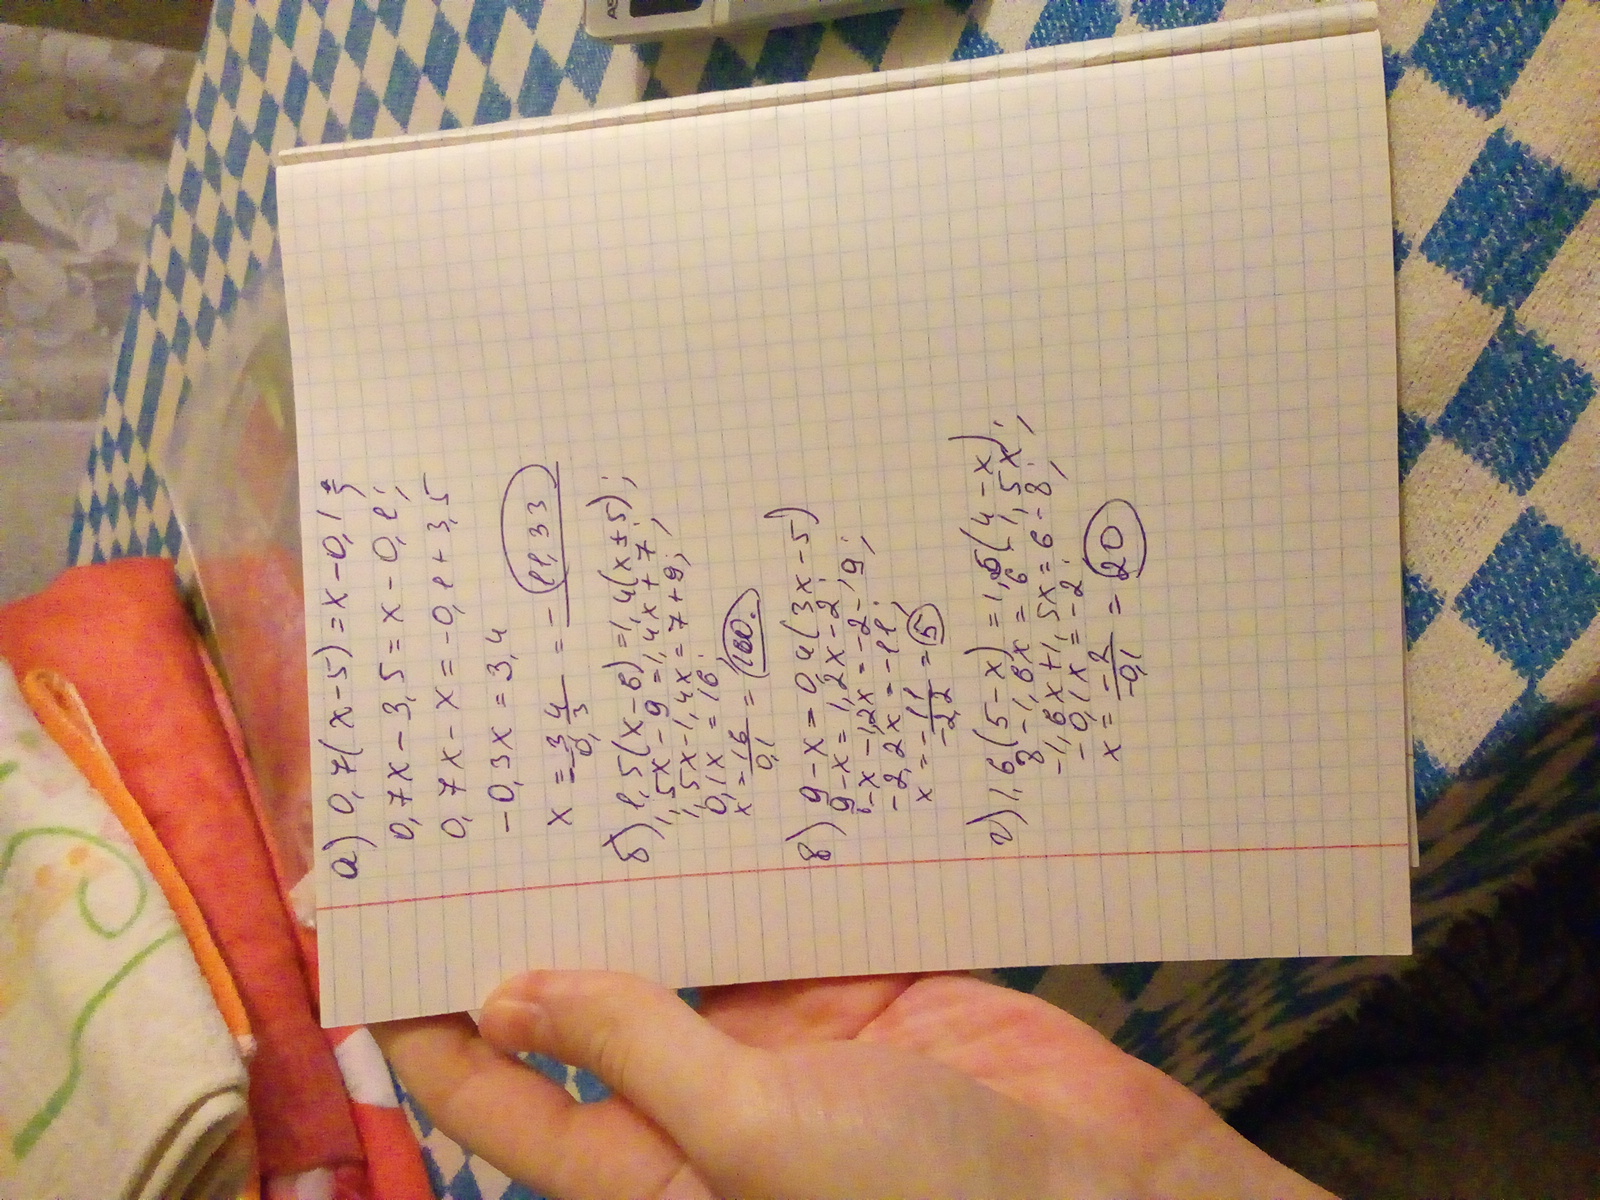 а) 0,7(x-5)=x-0,1;
0,7x-3,5=x-0,1;
0,7x-x=-0,1+3,5
-0,3x=3,4
x=-3,4/0,3=-11,33
б) 1,5(x-6)=1,4(x+5);
1,5x-9=1,4x+7;
1,5x-1,4x=7+9;
0,1x=16.
x=16/0,1=160.
в) 9-x=0,4(3x-5)
9-x=1,2x-2;
-x-1,2x=-2-9;
-2,2x=-11;
x=-11/-2,2=5
г) 1,6(5-x)=1,5(4-x);
8-1,6x=6-1,5x;
-1,6x+1,5x=6-8;
-0,1x=-2;
x=-2/-0,1=20